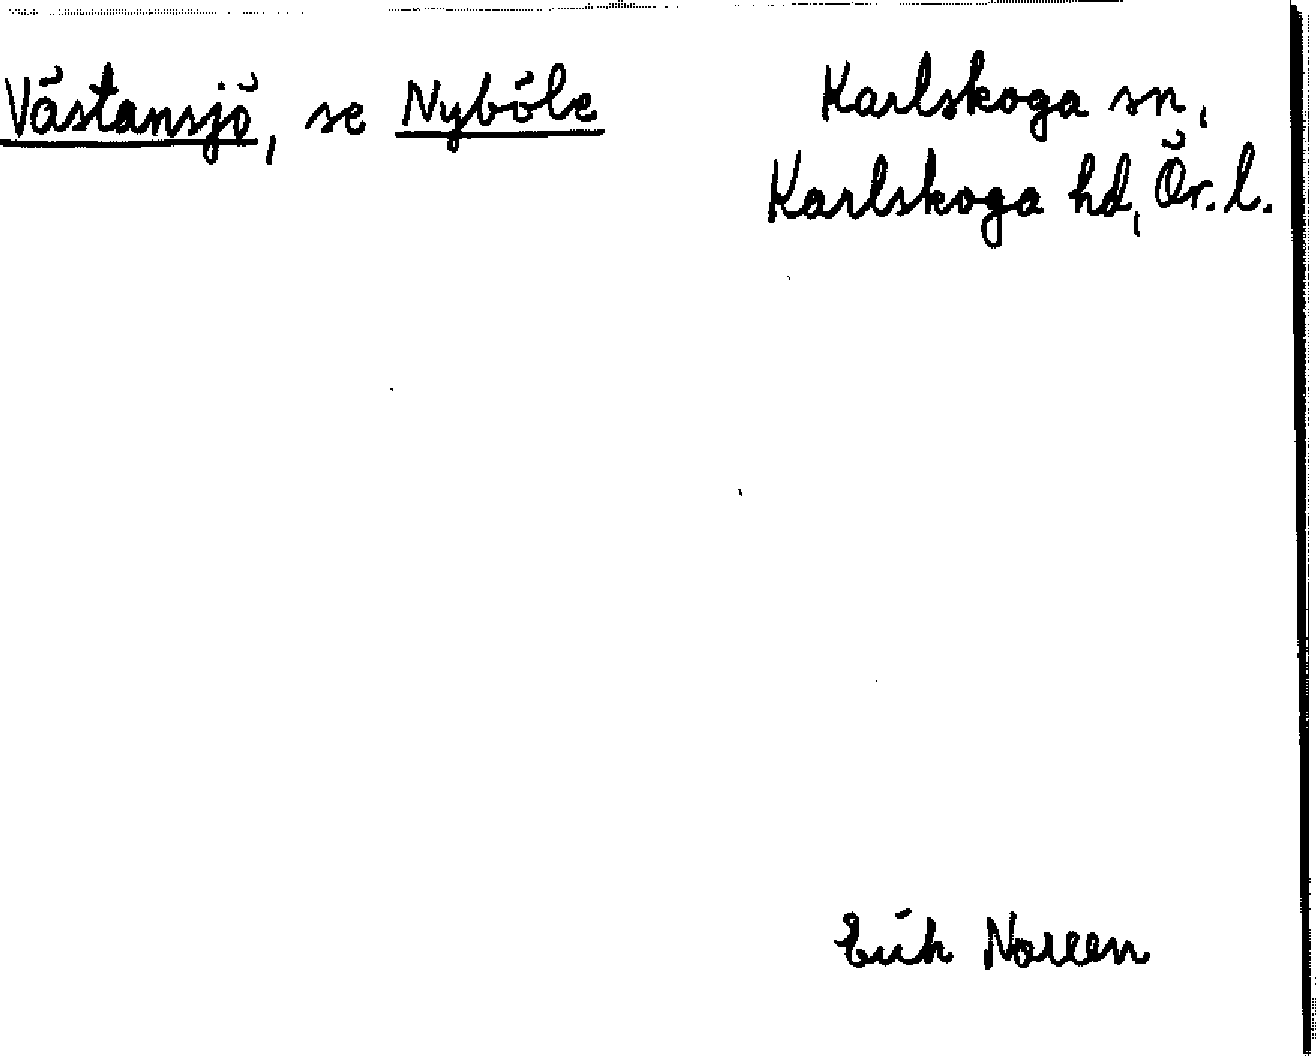 Västansjö, se Nyböle
Karlskoga sn,
Karlskoga hd, Ör. l.
Erik Noreen